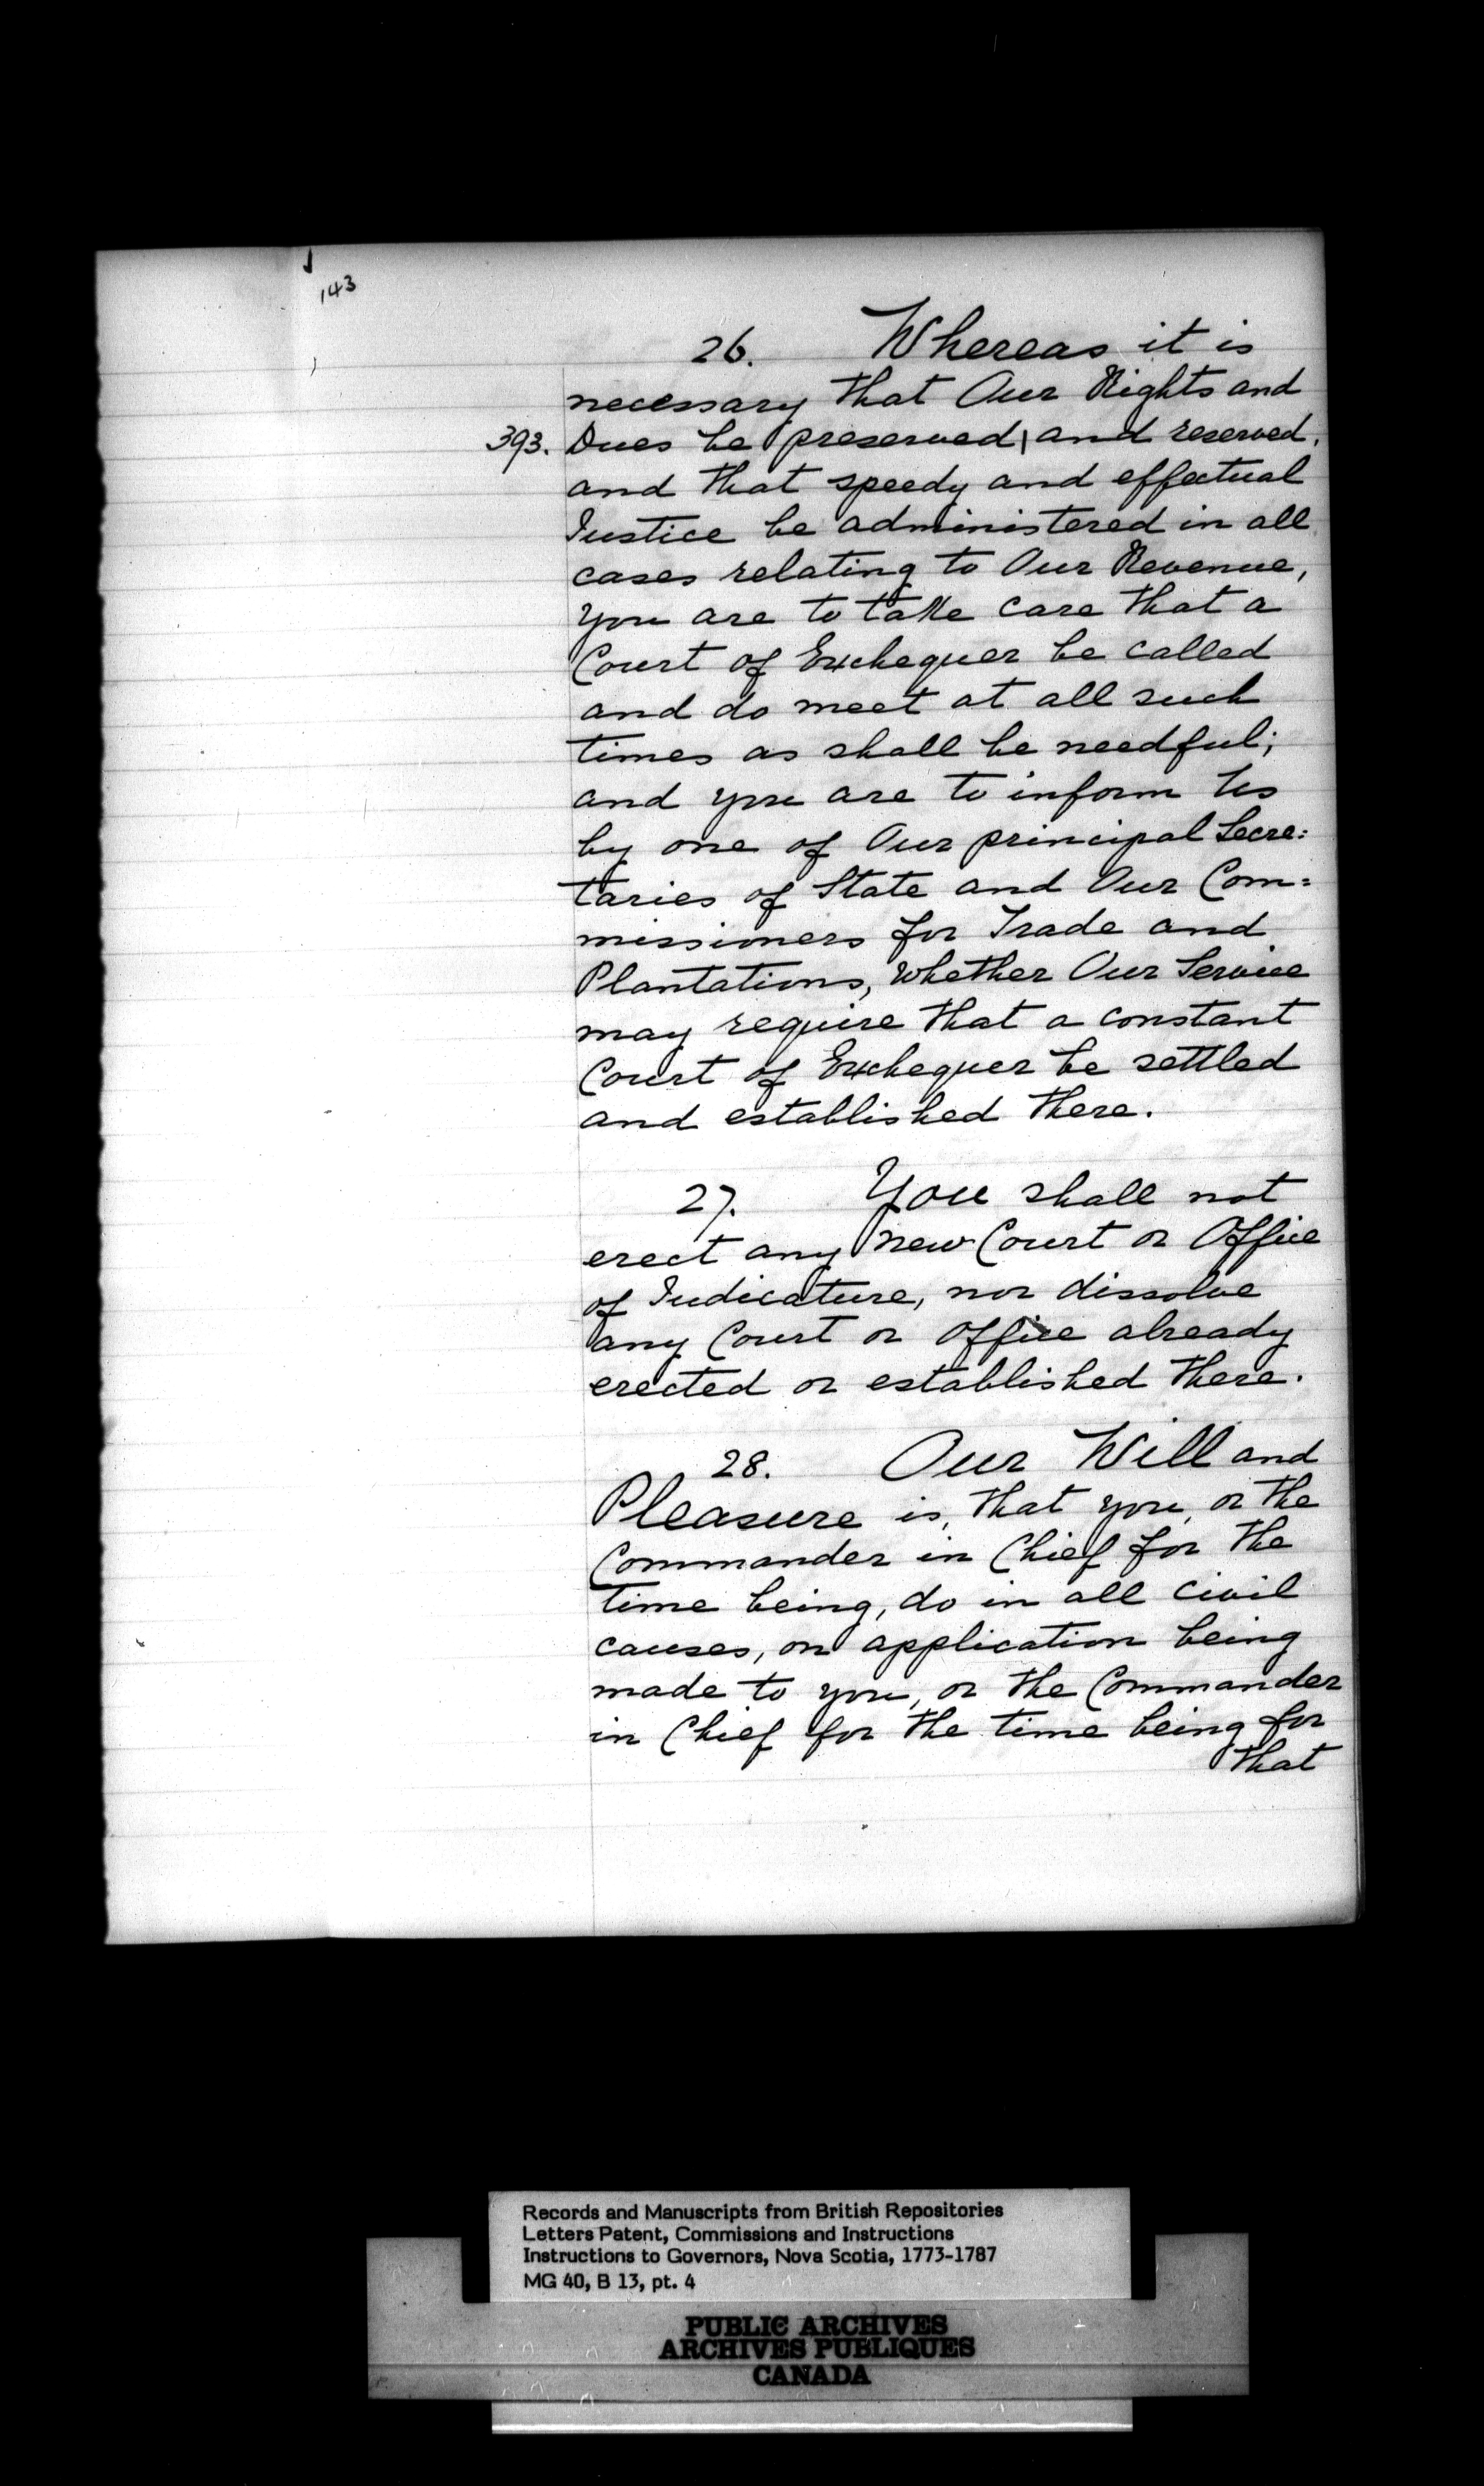 143
26. Whereas it is
necessary that Our Rights and
393. Dues be preserved | and reserved,
and that speedy and effectual
Justice be administered in all
cases relating to Our Revenue,
you are to take care that a
Court of Exchequer be called
and do meet at all such
times as shall be needful;
and you are to inform Us
by one of Our principal Secre:
taries of State and Our Com:
missioners for Trade and
Plantations, whether Our Service
may require that a constant
Court of Exchequer be settled
and established there.
27. You shall not
erect any new Court or Office
of Judicature, nor dissolve
any Court or Office already
erected or established there.
28. Our Will and
Pleasure is, that you, or the
Commander in Chief for the
time being, do in all civil
causes, on application being
made to you, or the Commander
in Chief for the time being for
that
Records and Manuscripts from British Repositories
Letters Patent, Commissions and Instructions
Instructions to Governors, Nova Scotia, 1773-1787
MG 40, B 13, pt. 4
PUBLIC ARCHIVES
ARCHIVES PUBLIQUES
CANADA